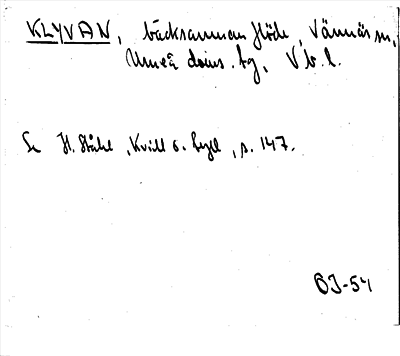 KLYVAN, bäcksammanflöde, Vännäs sn,
Umeå doms. tg, Vb. l.
Se H. Ståhl, Kvill o. tegel, s. 147.
OJ-54